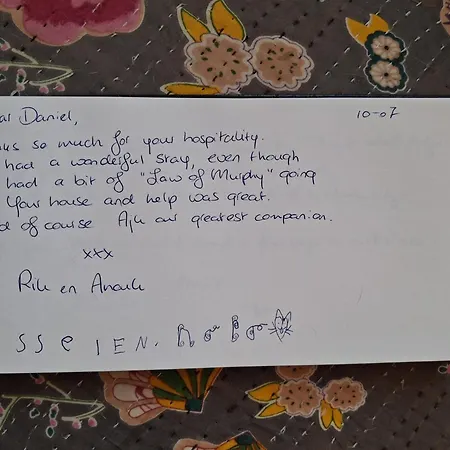 ar Daniel,
10-07
us so much for your hospitality.
had a wonderful stay, even though
had a bit of "Law of Murphy" going
Your house and help was great.
d of course our greatest companion.
xxx
en
SSe IEN.